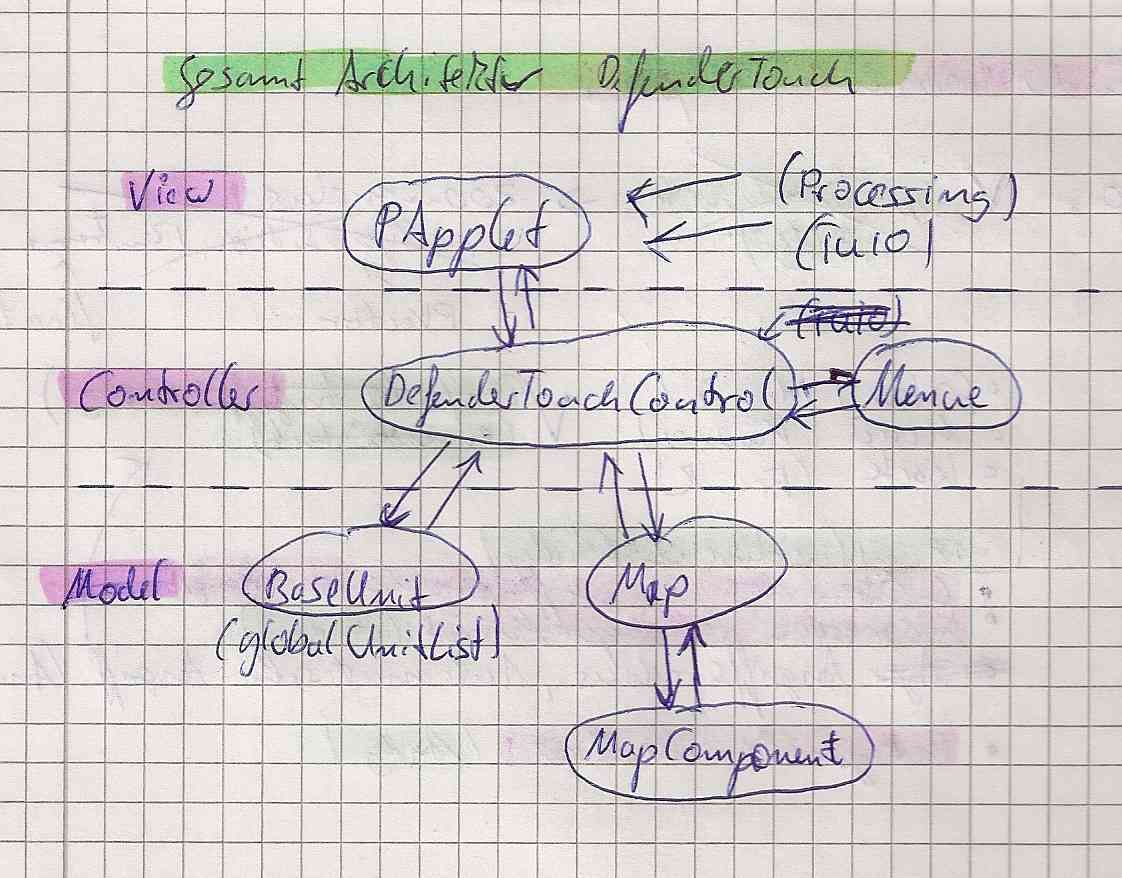 Gesamt Architektur DefenderTouch
View
PApplet
(Processing)
(TUIO)
(Tuio)
Controller
DefenderTouchControl
Menue
Model
BaseUnit
(globalUnitList)
Map
MapComponent